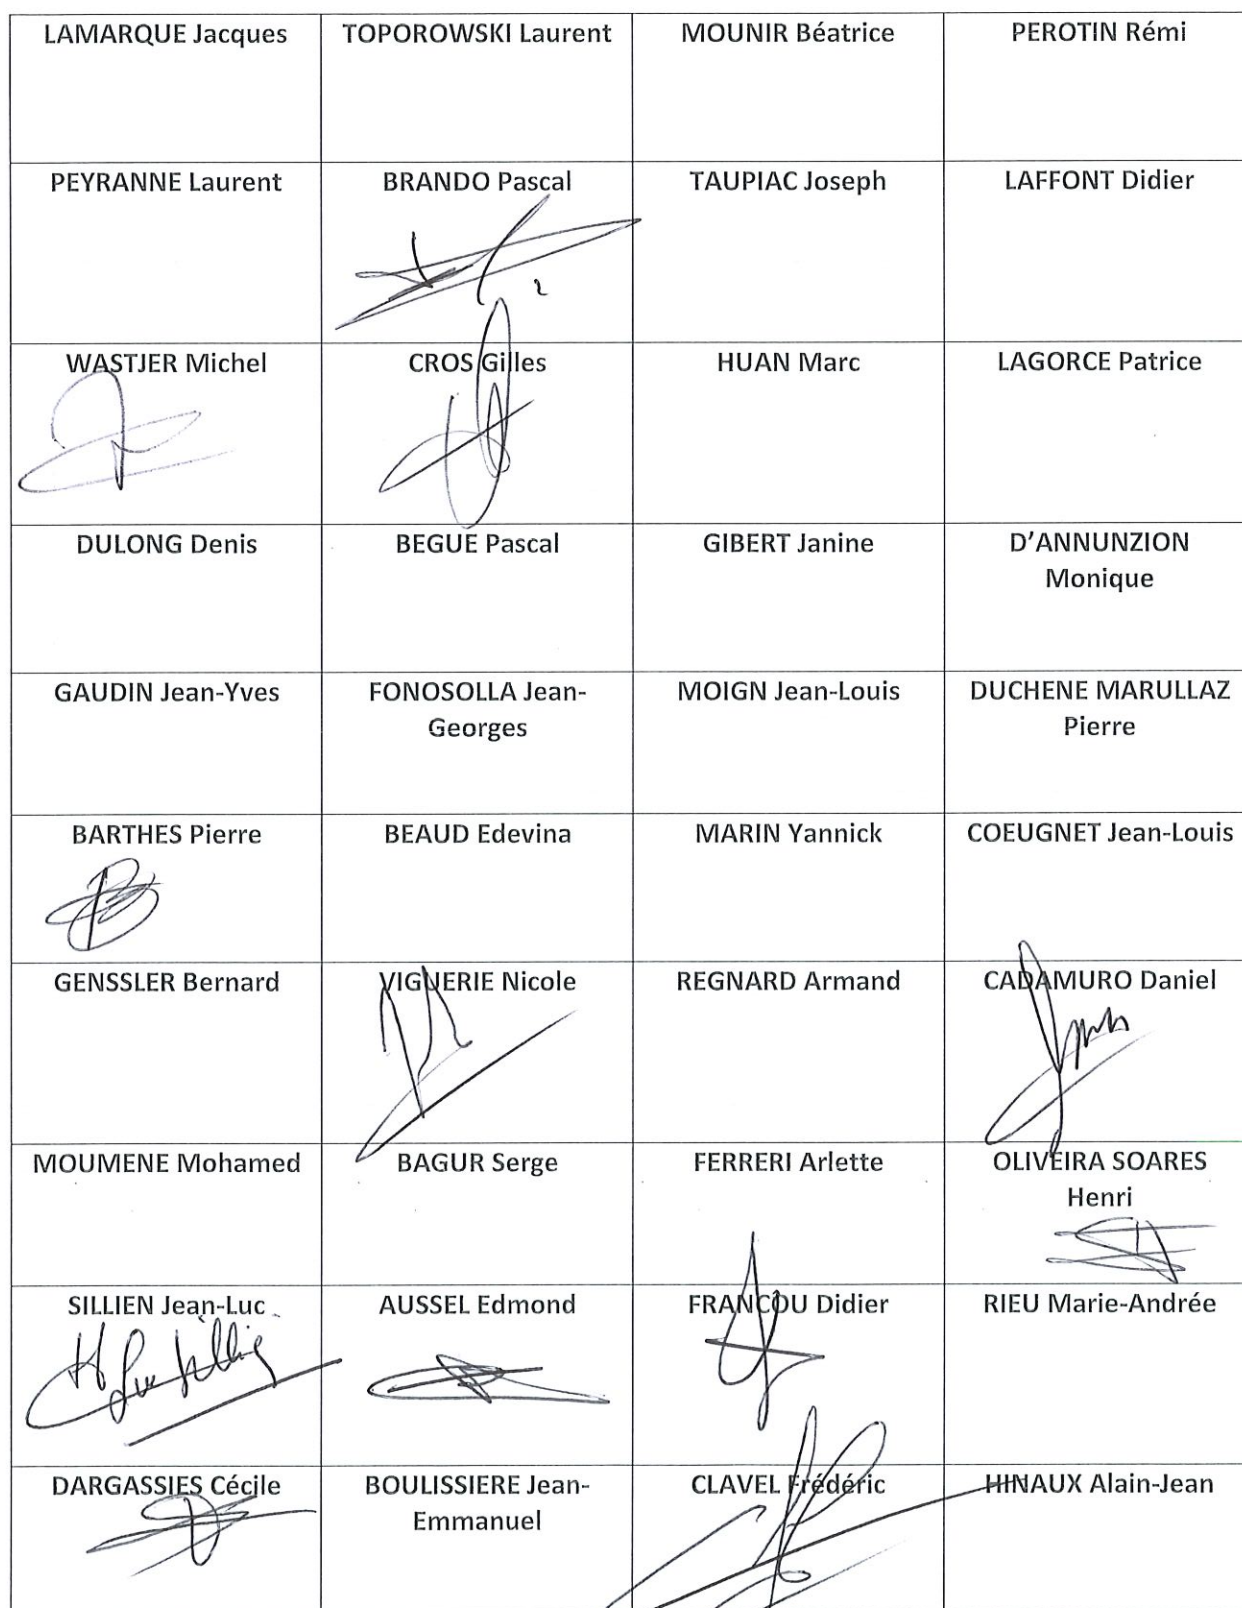 LAMARQUE Jacques
TOPOROWSKI Laurent
MOUNIR Béatrice
PEROTIN Rémi
PEYRANNE Laurent
BRANDO Pascal
TAUPIAC Joseph
LAFFONT Didier
WASTJER Michel
CROS Gilles
HUAN Marc
LAGORCE Patrice
DULONG Denis
BEGUE Pascal
GIBERT Janine
D'ANNUNZION
Monique
GAUDIN Jean-Yves
FONOSOLLA Jean-
Georges
MOIGN Jean-Louis
DUCHENE MARULLAZ
Pierre
BARTHES Pierre
BEAUD Edevina
MARIN Yannick
COEUGNET Jean-Louis
GENSSLER Bernard
VIGUERIE Nicole
REGNARD Armand
CADAMURO Daniel
MOUMENE Mohamed
BAGUR Serge
FERRERI Arlette
OLIVEIRA SOARES
Henri
SILLIEN Jean-Luc
AUSSEL Edmond
FRANCOU Didier
RIEU Marie-Andrée
DARGASSIES Cécile
BOULISSIERE Jean-
Emmanuel
CLAVEL Frédéric
HINAUX Alain-Jean